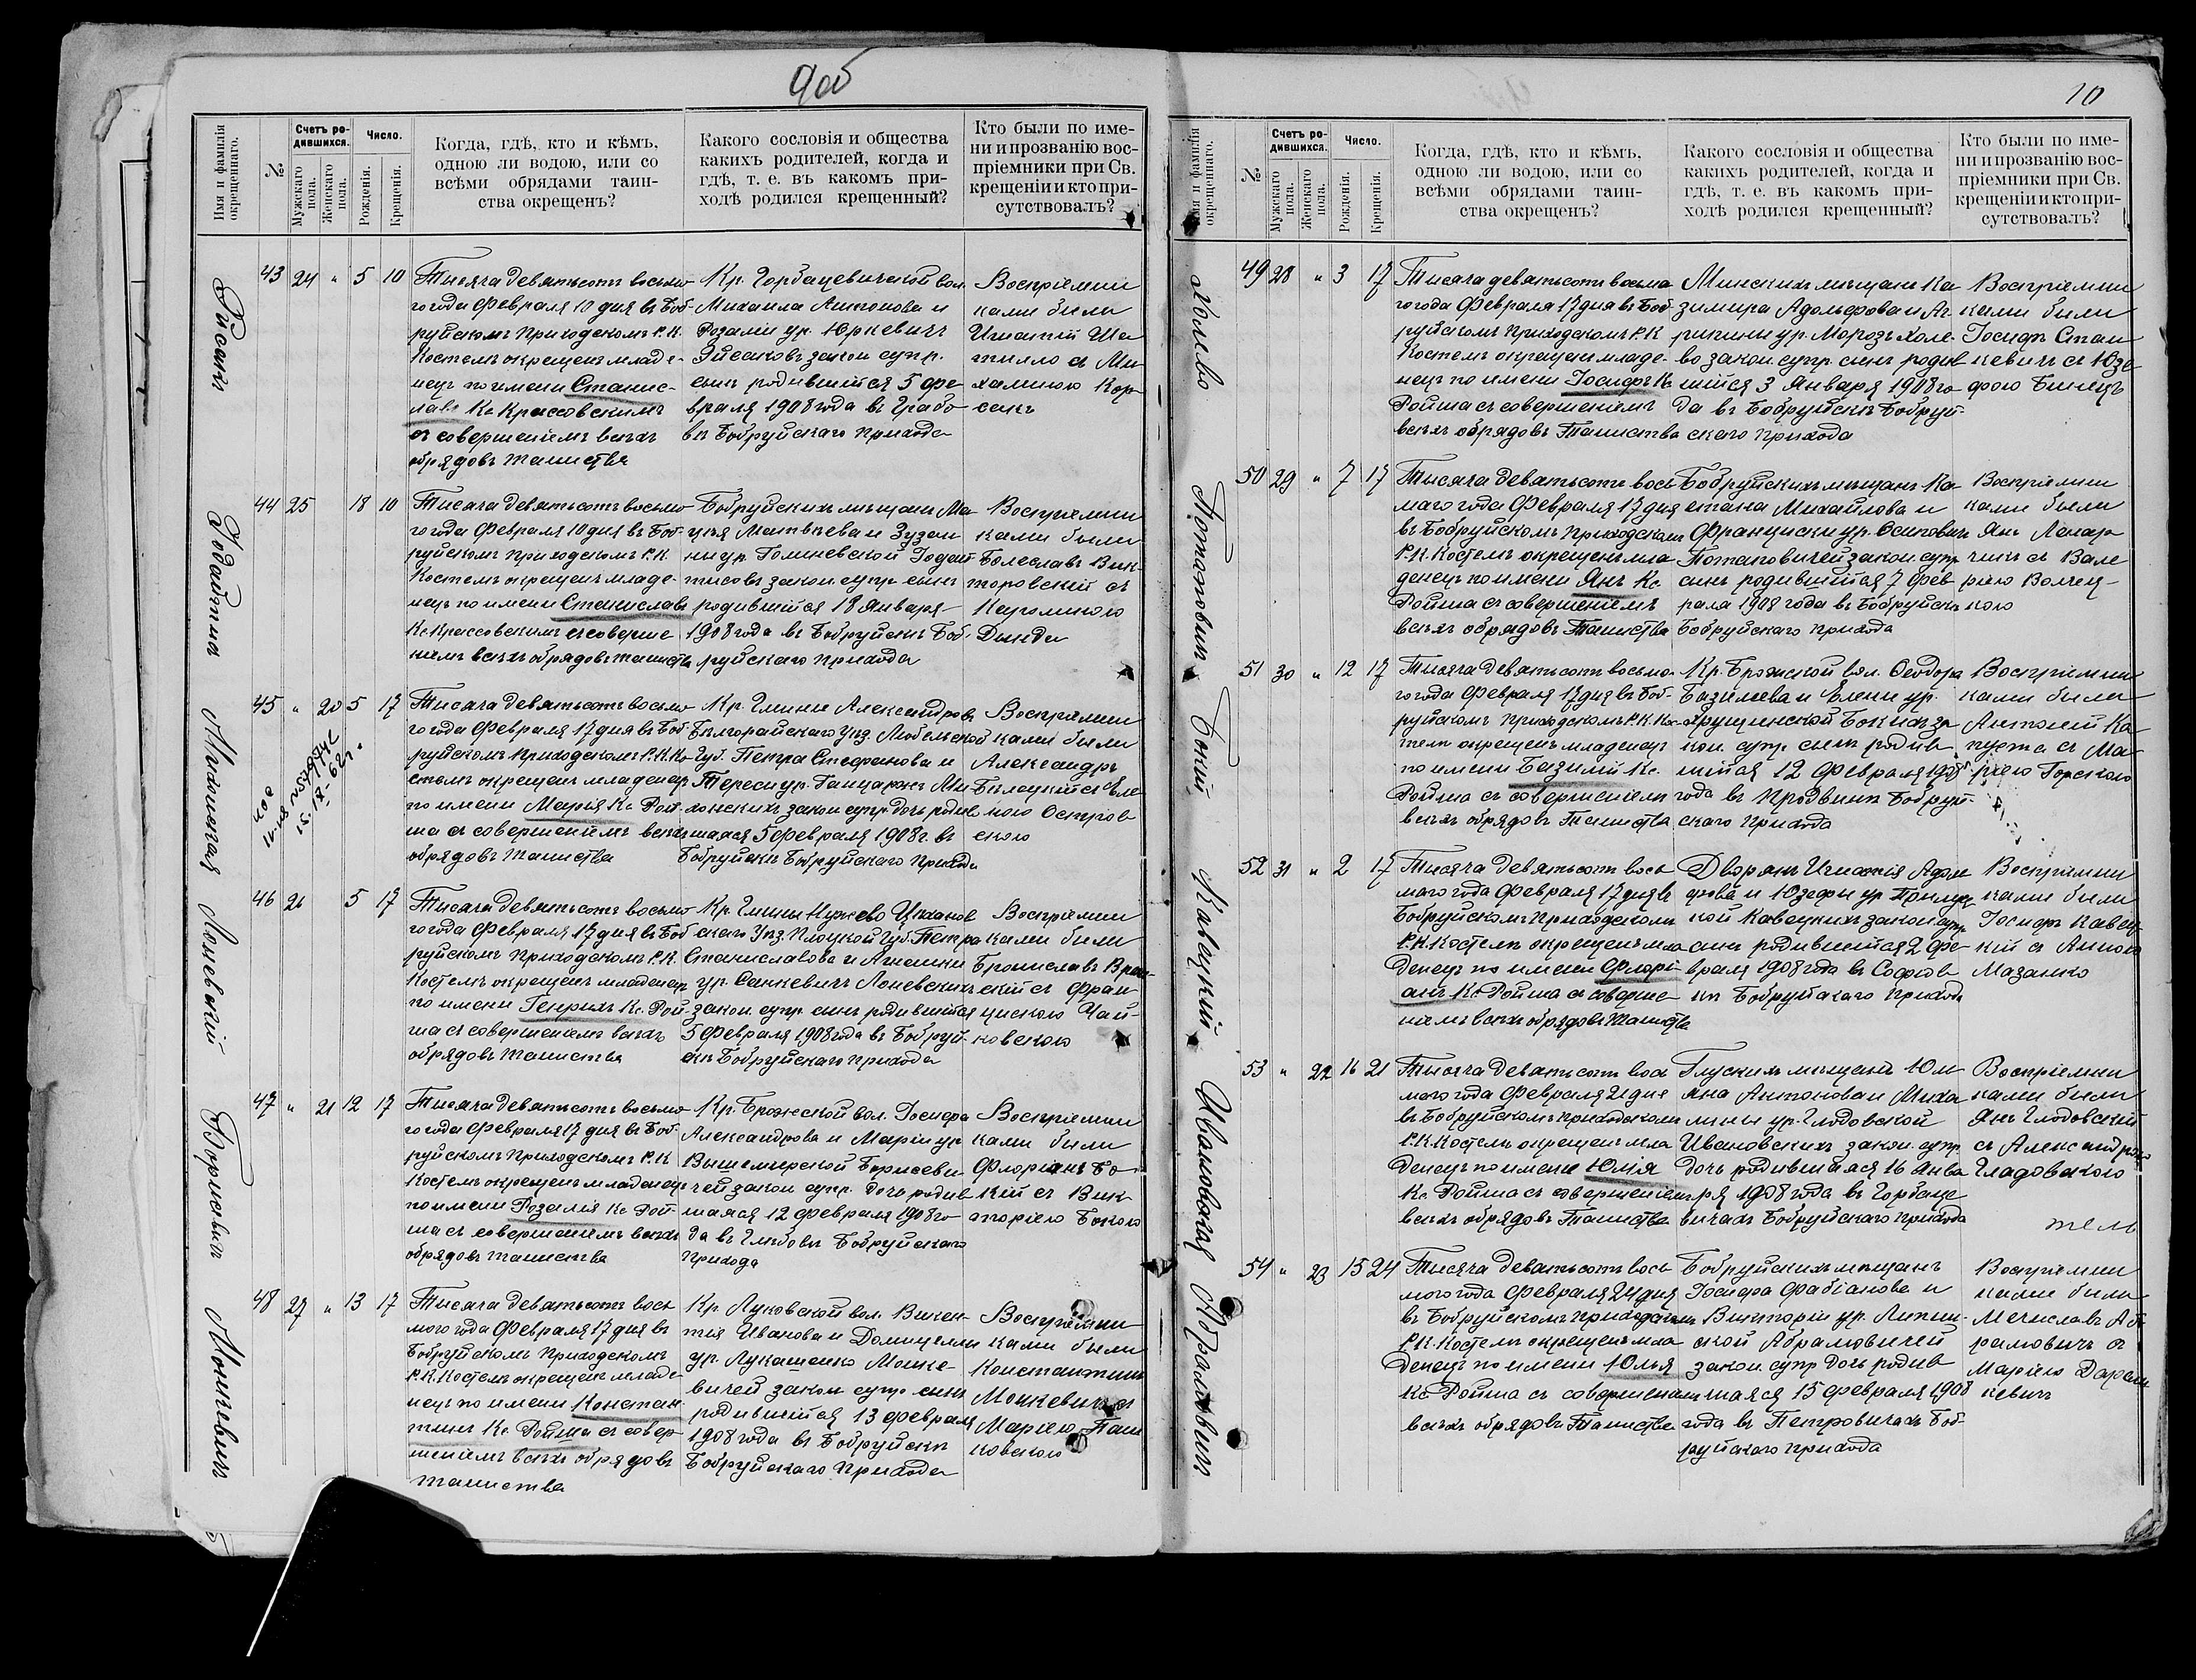 9об
Имя и фамилія окрещеннаго.
№
Счетъ родившихся.
Мужскаго пола.
Женскаго пола.
Число.
Рожденія.
Крещенія.
Когда, гдѣ, кто и кѣмъ,
одною ли водою, или со
всѣми обрядами таин-
ства окрещенъ?
Какого сословія и общества
какихъ родителей, когда и
гдѣ, т. е. въ какомъ при-
ходѣ родился крещенный?
Кто были по име-
ни и прозванію вос-
пріемники при Св.
крещеніи и кто при-
сутствовалъ?
43 24 " 5 10
Тысяча девятьсотъ восьмо
го года Февраля 10 дня въ Боб-
руйскомъ Приходскомъ Р.К.
Костелѣ окрещенъ младе-
нецъ по имени Станис-
лавъ Кс Крассовскимъ
съ совершеніемъ всѣхъ
обрядовъ таинства
Кр. Горбацевичской вол.
Михаила Антонова и
Розаліи ур. Юркевичъ
законн супр.
сынъ родившійся 5 фе
враля 1908 года въ Грабо
вѣ Бобруйскаго прихода
Воспріемни
ками были
Игнатій
съ Ми
халиною Кор
сакъ
44 25 18 10
Тысяча девятьсотъ восьмо
го года Февраля 10 дня въ Боб-
руйскомъ приходскомъ Р.К.
Костелѣ окрещенъ младе-
нецъ по имени Станиславъ
Кс Крассовскимъ съ соверше
ніемъ всѣхъ обрядовъ таинств
Бобруйскихъ мѣщанъ Ма
цѣя Матвѣева и Зузан
ны ур. Голиневской
законн супр сынъ
родившійся 18 Января
1908 года въ Бобруйскѣ Боб-
руйскаго прихода
Воспріемни
ками были
Болеславъ Вик-
торовскій съ
Каролиною
Дында
Михонская
45 " 20 5 17
Тысяча девятьсотъ восьмо
го года Февраля 17 дня въ Боб
руйскомъ Приходскомъ Р.К. Ко
стелѣ окрещенъ младенецъ
по имени Марья Кс Рой-
ша съ совершеніемъ всѣхъ
обрядовъ таинства
Кр. Гмины Александровъ
Бѣлгорайскаго Уѣз Любельской
Губ. Петра Стефанова и
Тересы ур. Ганцаржъ Ми
хонскихъ законн супр дочь родив
шаяся 5 Февраля 1908 г. въ
Бобруйскѣ Бобруйскаго Прихода
Воспріемни
ками были
Александръ
Бѣлецкій съ Еле
ною Остров
скою
Лоневскій
46 26 5 17
Тысяча девятьсотъ восьмо
го года Февраля 17 дня въ Боб
руйскомъ Приходскомъ Р.К.
Костелѣ окрещенъ младенецъ
по имени Генрихъ Кс Рой-
ша съ совершеніемъ всѣхъ
обрядовъ таинства
Кр. Гмины Нужево Цѣханов
скаго Уѣз. Плоцкой Губ. Петра
Станиславова и Агнешки
ур. Санкевичъ Лоневскихъ
законн супр сынъ родившійся
5 Февраля 1908 года въ Бобруй-
скѣ Бобруйскаго прихода
Воспріемни
ками были
Брониславъ
скій съ Фран
цискою Чай-
ковскою
Борисевичъ
47 " 21 12 17
Тысяча девятьсотъ восьмо
го года Февраля 17 дня въ Боб-
руйскомъ Приходскомъ Р.К
Костелѣ окрещенъ младенецъ
по имени Розалія Кс Рой
ша съ совершеніемъ всѣхъ
обрядовъ таинства
Кр. Брожской вол. Іосифа
Александрова и Маріи ур
Вышемірской Борисеви-
чей законн супр. дочь родив
шаяся 12 Февраля 1908 го
да въ Глѣбовѣ Бобруйскаго
Прихода
Воспріемни
ками были
Флоріанъ Бо-
кій съ Вик-
торіею Бокою
Монкевичъ
48 27 " 13 17
Тысяча девятьсотъ вось
мого года Февраля 17 дня въ
Бобруйскомъ Приходскомъ
Р.К. Костелѣ окрещенъ младе
нецъ по имени Констан
тинъ Кс. Ройша съ совер-
шеніемъ всѣхъ обрядовъ
таинства
Кр. Луковской вол. Викен-
тія Иванова и Домицели
ур. Лукашенко Монке
вичей законн супр сынъ
родившійся 13 Февраля
1908 года въ Бобруйскѣ
Бобруйскаго Прихода
Воспріемни
ками были
Константинъ
Монкевичъ съ
Маріею
ковскою
10
Имя и фамилія окрещеннаго.
№
Счетъ родившихся.
Мужскаго пола.
Женскаго пола.
Число.
Рожденія.
Крещенія.
Когда, гдѣ, кто и кѣмъ,
одною ли водою, или со
всѣми обрядами таин-
ства окрещенъ?
Какого сословія и общества
какихъ родителей, когда и
гдѣ, т. е. въ какомъ при-
ходѣ родился крещенный?
Кто были по име-
ни и прозванію вос-
пріемники при Св.
крещеніи и кто при-
сутствовалъ?
Холево
49 28 " 3 17
Тысяча девятьсотъ восьмо
го года Февраля 17 дня въ Боб
руйскомъ Приходскомъ Р.К
Костелѣ окрещенъ младе-
нецъ по имени Іосифъ Кс
Ройша съ совершеніемъ
всѣхъ обрядовъ Таинства
Минскихъ мѣщанъ Ка
зимира Адольфова и Аг-
рипины ур. Морозъ Холе-
во законн. супр. сынъ родив
шійся 3 Января 1908 го
да въ Бобруйскѣ Бобруй-
скаго прихода
Воспріемни
ками были
Іосифъ Стан
кевичъ съ Юзе
фою
Потаповичъ
50 29 " 7 17
Тысяча девятьсотъ вось
маго года Февраля 17 дня
въ Бобруйскомъ Приходскомъ
Р.К. Костелѣ окрещенъ мла
денецъ по имени Янъ Кс
Ройша съ совершеніемъ
всѣхъ обрядовъ Таинства
Бобруйскихъ мѣщанъ Ка-
етана Михайлова и
Францишки ур. Осиповичъ
Потаповичей законн супр
сынъ родившійся 7 Фев
раля 1908 года въ Бобруйскѣ
Бобруйскаго прихода
Воспріемни
ками были
Янъ Ленар
чикъ съ Вале
ріею Волчец-
кою
Бокій
51 30 " 12 17
Тысяча девятьсотъ восьмо-
го года Февраля 17 дня въ Боб-
руйскомъ Приходскомъ Р.К. Кос-
телѣ окрещенъ младенецъ
по имени Базилій Кс.
Ройша съ совершеніемъ
всѣхъ обрядовъ Таинства
Кр. Брожской вол. Ѳеодора
Базилева и Елены ур.
Хрущинской Бокихъ за
кон. супр. сынъ родив
шійся 12 Февраля 1908
года въ Продвинѣ Бобруй-
скаго прихода
Воспріемни
ками были
Антоній Ка
пуста съ Ма-
ріею Горскою
Кавецкій
52 31 " 2 17
Тысяча девятьсотъ вось
маго года Февраля 17 дня въ
Бобруйскомъ Приходскомъ
Р.К. Костелѣ окрещенъ мла
денецъ по имени Флорі-
анъ Кс Ройша съ соверше
ніемъ всѣхъ обрядовъ таинства
Дворянъ Игнатія Адоль
фова и Юзефы ур
Кавецкихъ законн супр
сынъ родившійся 2 фе-
враля 1908 года въ Софіев
кѣ Бобруйскаго прихода
Воспріемни
ками были
Іосифъ Кавец
кій съ Анною
Мазанко
Ивановская
53 " 22 16 21
Тысяча девятьсотъ вось
маго года Февраля 21 дня
въ Бобруйскомъ Приходскомъ
Р.К. Костелѣ окрещенъ мла
денецъ по имени Юлія
Кс. Ройша съ совершеніемъ
всѣхъ обрядовъ Таинства
Глускихъ мѣщанъ Юл
яна Антонова и Миха
лины ур. Глодовской
Ивановскихъ законн. супр.
дочь родившаяся 16 янва
ря 1908 года въ Горбаце
вичахъ Бобруйскаго прихода
Воспріемни
ками были
Янъ Глодовскій
съ Александрою
Гладовскою
Абрамовичъ
54 " 23 15 24
Тысяча девятьсотъ вось
мого года Февраля 24 дня
въ Бобруйскомъ Приходскомъ
Р.К. Костелѣ окрещенъ мла
денецъ по имени Юлья
Кс Ройша съ совершеніемъ
всѣхъ обрядовъ Таинства
Бобруйскихъ мѣщанъ
Іосифа Фабіанова и
Викторіи ур. Липин-
ской Абрамовичей
законн. супр дочь родив
шаяся 15 Февраля 1908
года въ Петровичахъ Боб
руйскаго прихода
Воспріемни
ками были
Мечиславъ Аб
рамовичъ съ
Маріею
кевичъ